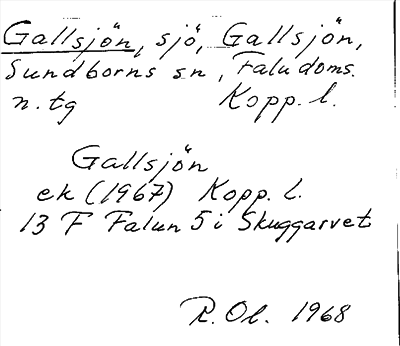 Gallsjön, sjö, Gallsjön,
Sundborns sn, Faludoms.
n. tg Kopp. l.
Gallsjön
ek (1967) Kopp. L.
13 F Falun 5 i Skuggarvet
R. Ol. 1968